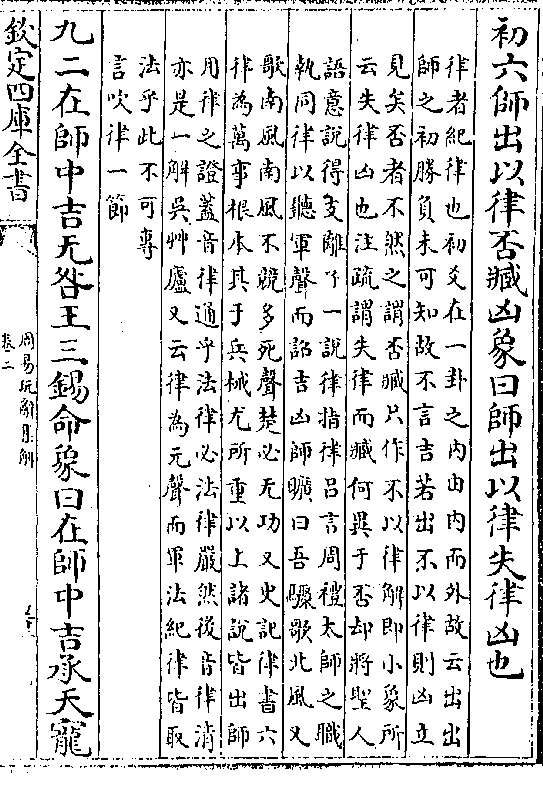 初六師出以律否臧凶象曰師出以律失律凶也
律者紀律也初爻在一卦之内由内而外故云出出
師之初勝負未可知故不言吉若出不以律則凶立
見矣否者不然之謂否臧只作不以律解即小象所
云失律凶也注疏謂失律而臧何異于否却將聖人
語意説得支離了一説律指律吕言周禮太師之職
執同律以聽軍聲而詔吉凶師曠曰吾驟歌北風又
歌南風南風不競多死聲楚必无功又史記律書六
律為萬事根本其于兵械尤所重以上諸説皆出師
用律之證蓋音律通乎法律必法律嚴然後音律消
亦是一解吴艸廬又云律為元聲而軍法紀律皆取
法乎此不可專
言吹律一節
九二在師中吉无咎王三錫命象曰在師中吉承天寵
欽定四庫全書
周易玩辭集解
卷二